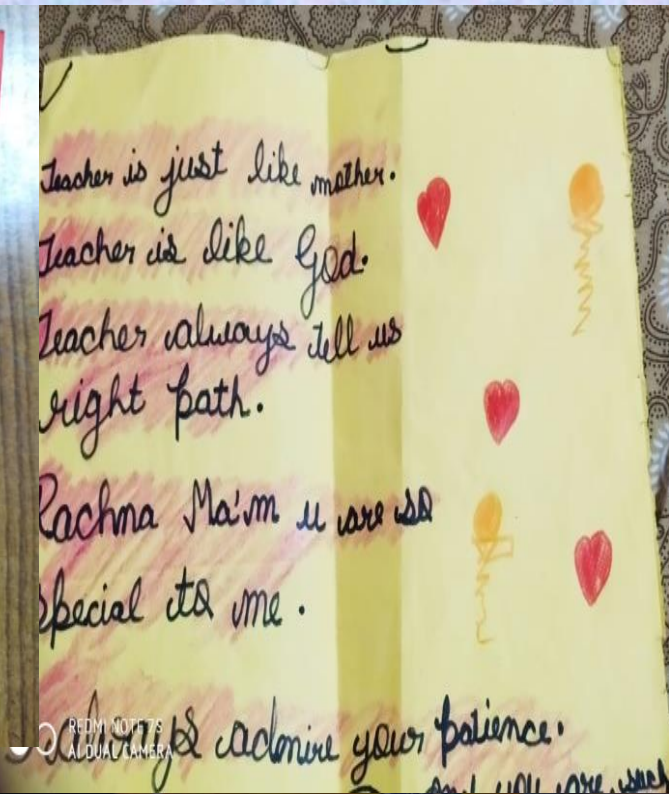 Teacher is just like mother.
Teacher is like God.
Teacher always tell us
right path.
Rachna Ma'm u are so
special to me.
always admire your patience.
and you are such
REDMI NOTE 7S
AI DUAL CAMERA